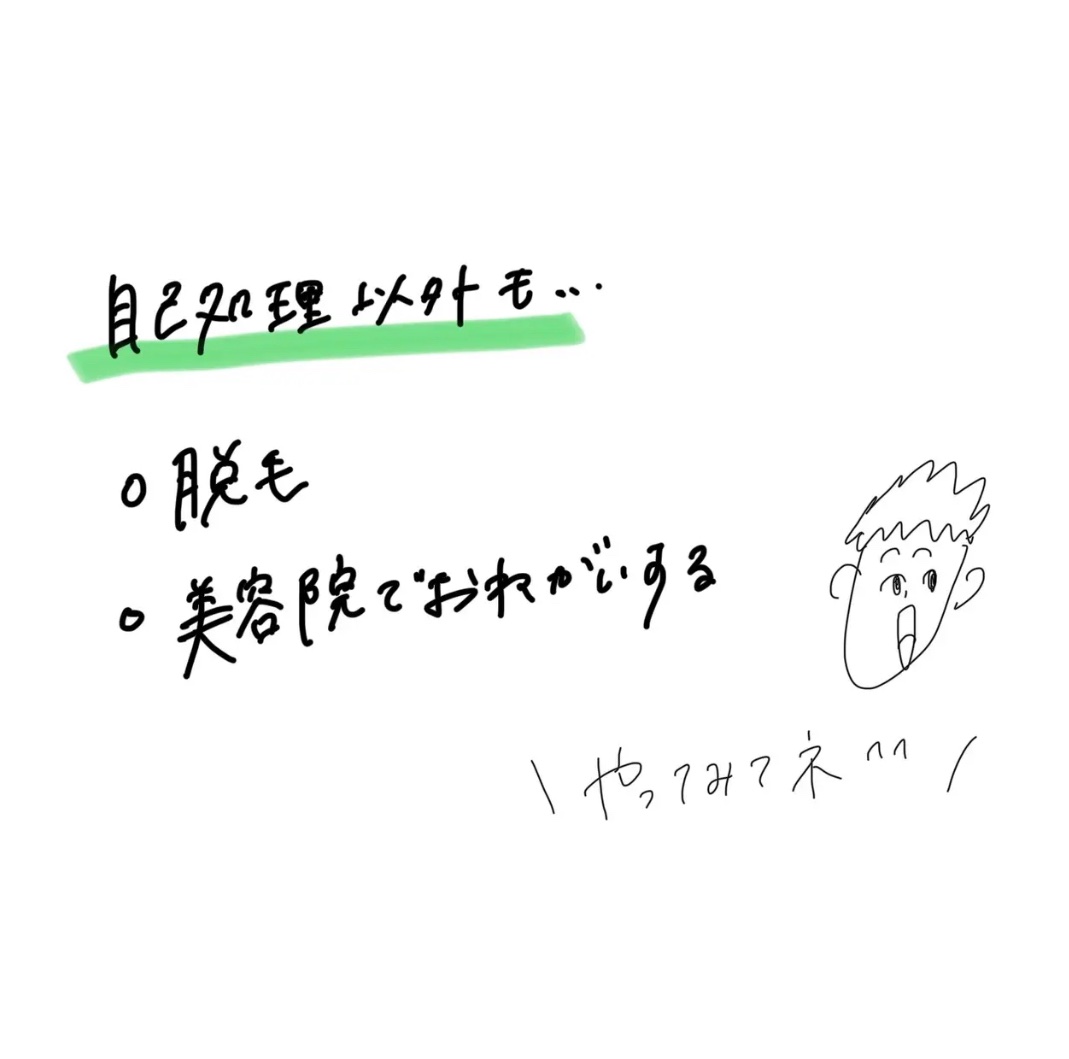 自己処理以外も...
○ 脱毛
○ 美容院でおねがいする
\ やってみてネ^^ /